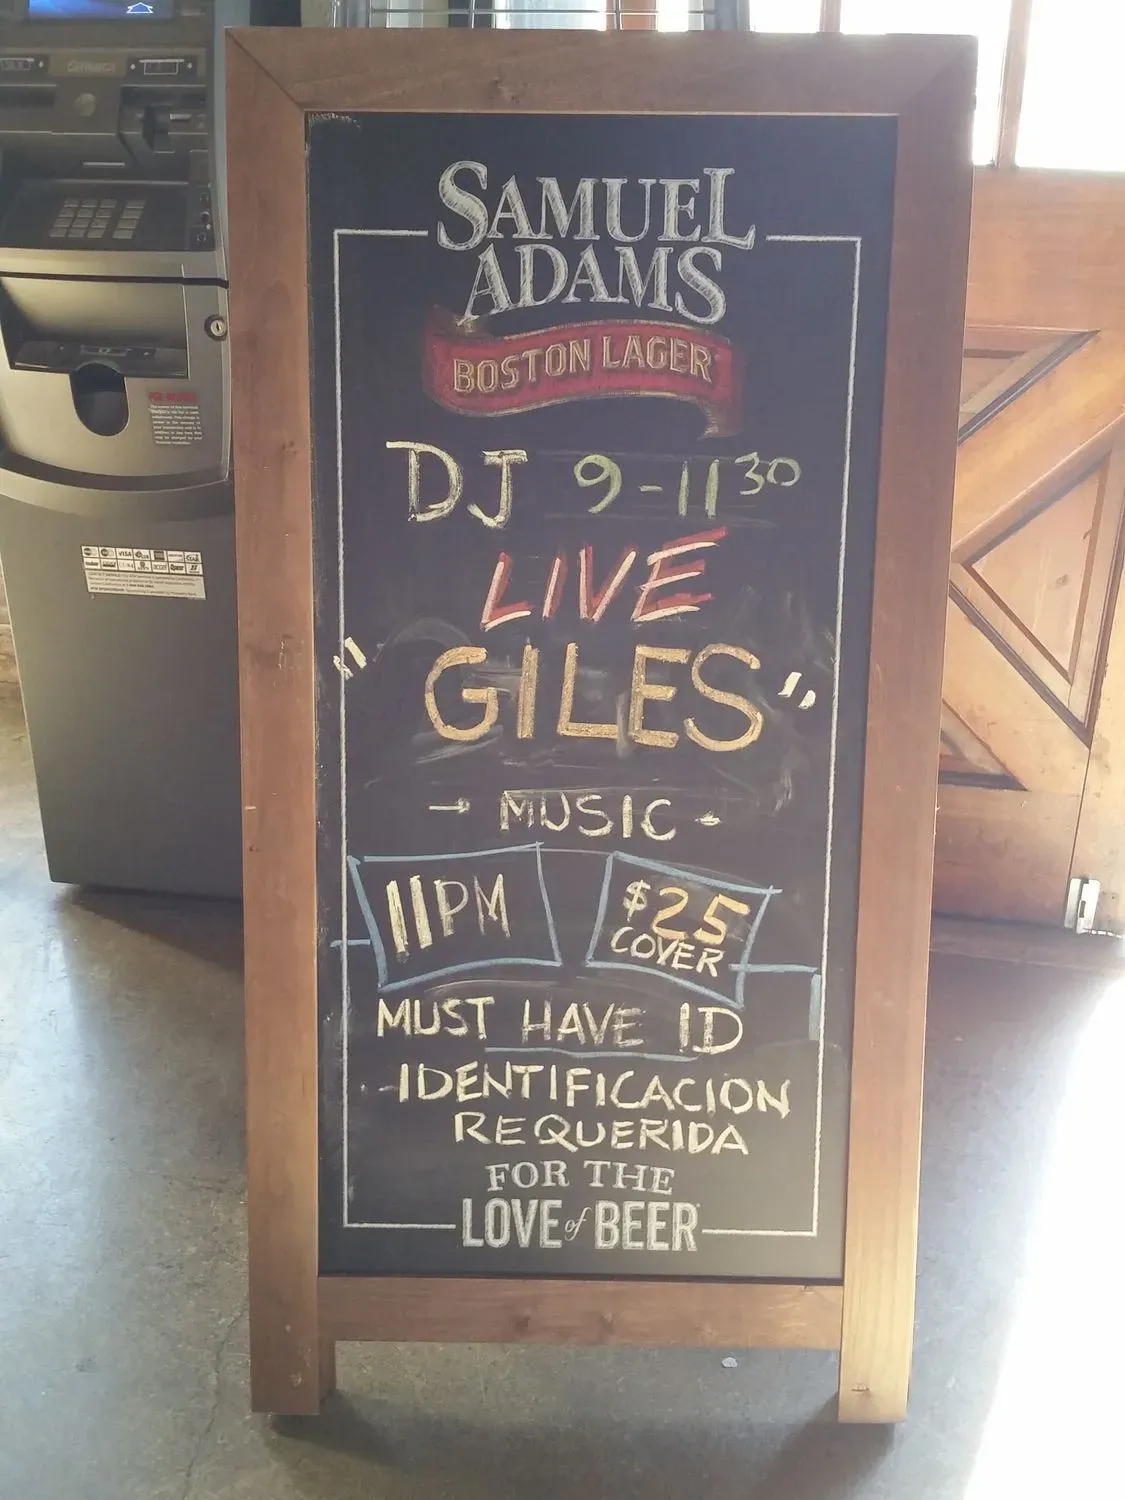 SAMUEL
ADAMS
BOSTON LAGER
DJ 9-11 30
LIVE
"GILES"
→ MUSIC ←
11PM
$25
COVER
MUST HAVE ID
IDENTIFICACION
REQUERIDA
FOR THE
LOVE of BEER
VISA